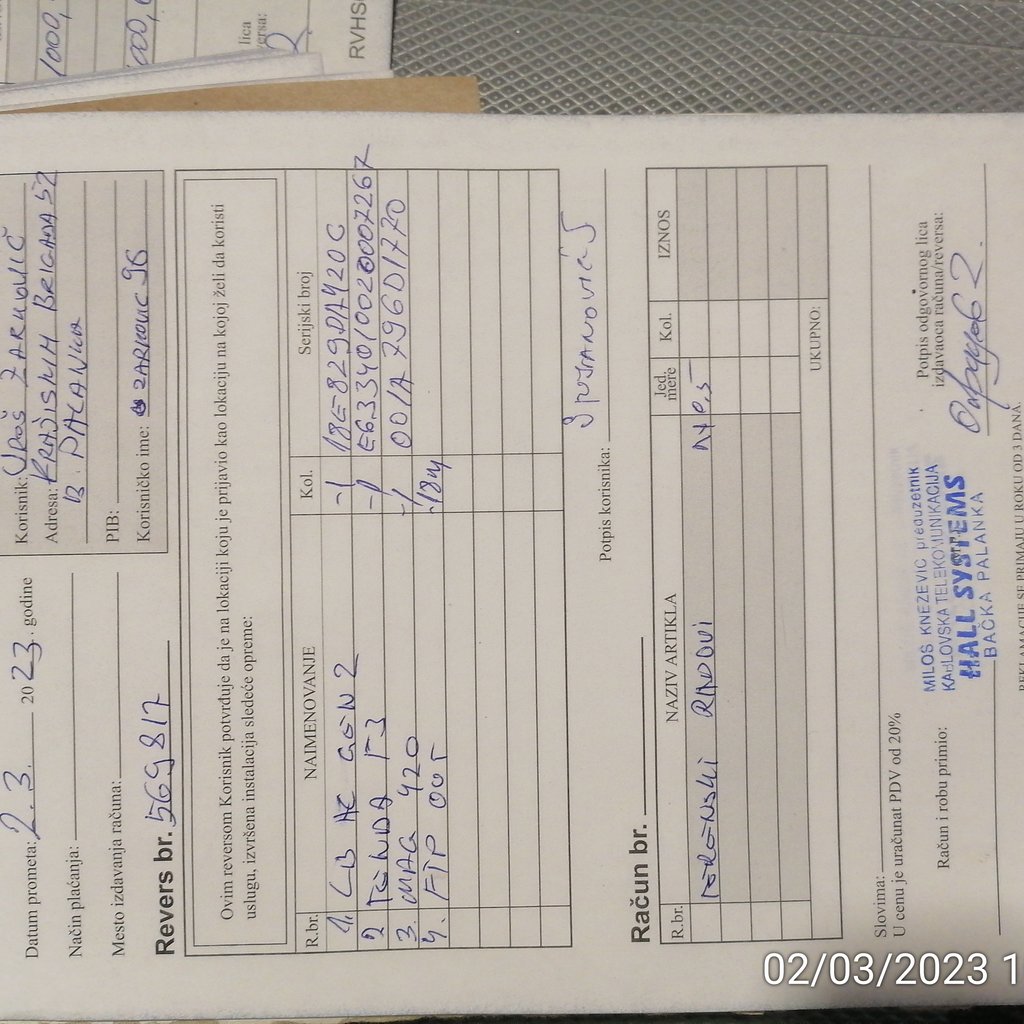 Datum prometa: 2.3. 2023. godine
Način plaćanja:
Mesto izdavanja računa:
Revers br. 569817
Korisnik: UROŠ
Adresa: KRAJIŠKIH BRIGADA 52
B. PALANKA
PIB:
Korisničko ime: ZARKOVIC 96
Ovim reversom Korisnik potvrđuje da je na lokaciji koju je prijavio kao lokaciju na kojoj želi da koristi
uslugu, izvršena instalacija sledeće opreme:
R.br. NAIMENOVANJE Kol. Serijski broj
1. LB AC GEN 2 -1 18E829DA420C
2 TENDA F3 -1 E6334010020007267
3. MAG 420 -1 001A796D1770
4. FTP OUT -18m
Potpis korisnika:
Račun br.
R.br. NAZIV ARTIKLA Jed. mere Kol. IZNOS
TERENSKI RADOVI 1x0,5
UKUPNO:
Slovima:
U cenu je uračunat PDV od 20%
Račun i robu primio:
MILOS KNEZEVIC preduzetnik
KABLOVSKA TELEKOMUNIKACIJA
HALL SYSTEMS
BAČKA PALANKA
Potpis odgovornog lica
izdavaoca računa/reversa:
REKLAMACIJE SE PRIMAJU U ROKU OD 3 DANA.
1000,
000,
lica
RVHS
02/03/2023 1